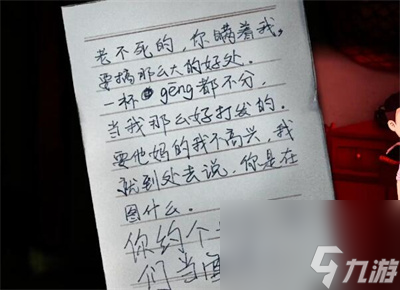 老不死的，你瞒着我，
要搞那么大的好处．
一杯 gēng 都不分．
当我那么好打发的．
要他妈的我不高兴，我
就到处去说，你是在
图什么．
你约个
们当
九游